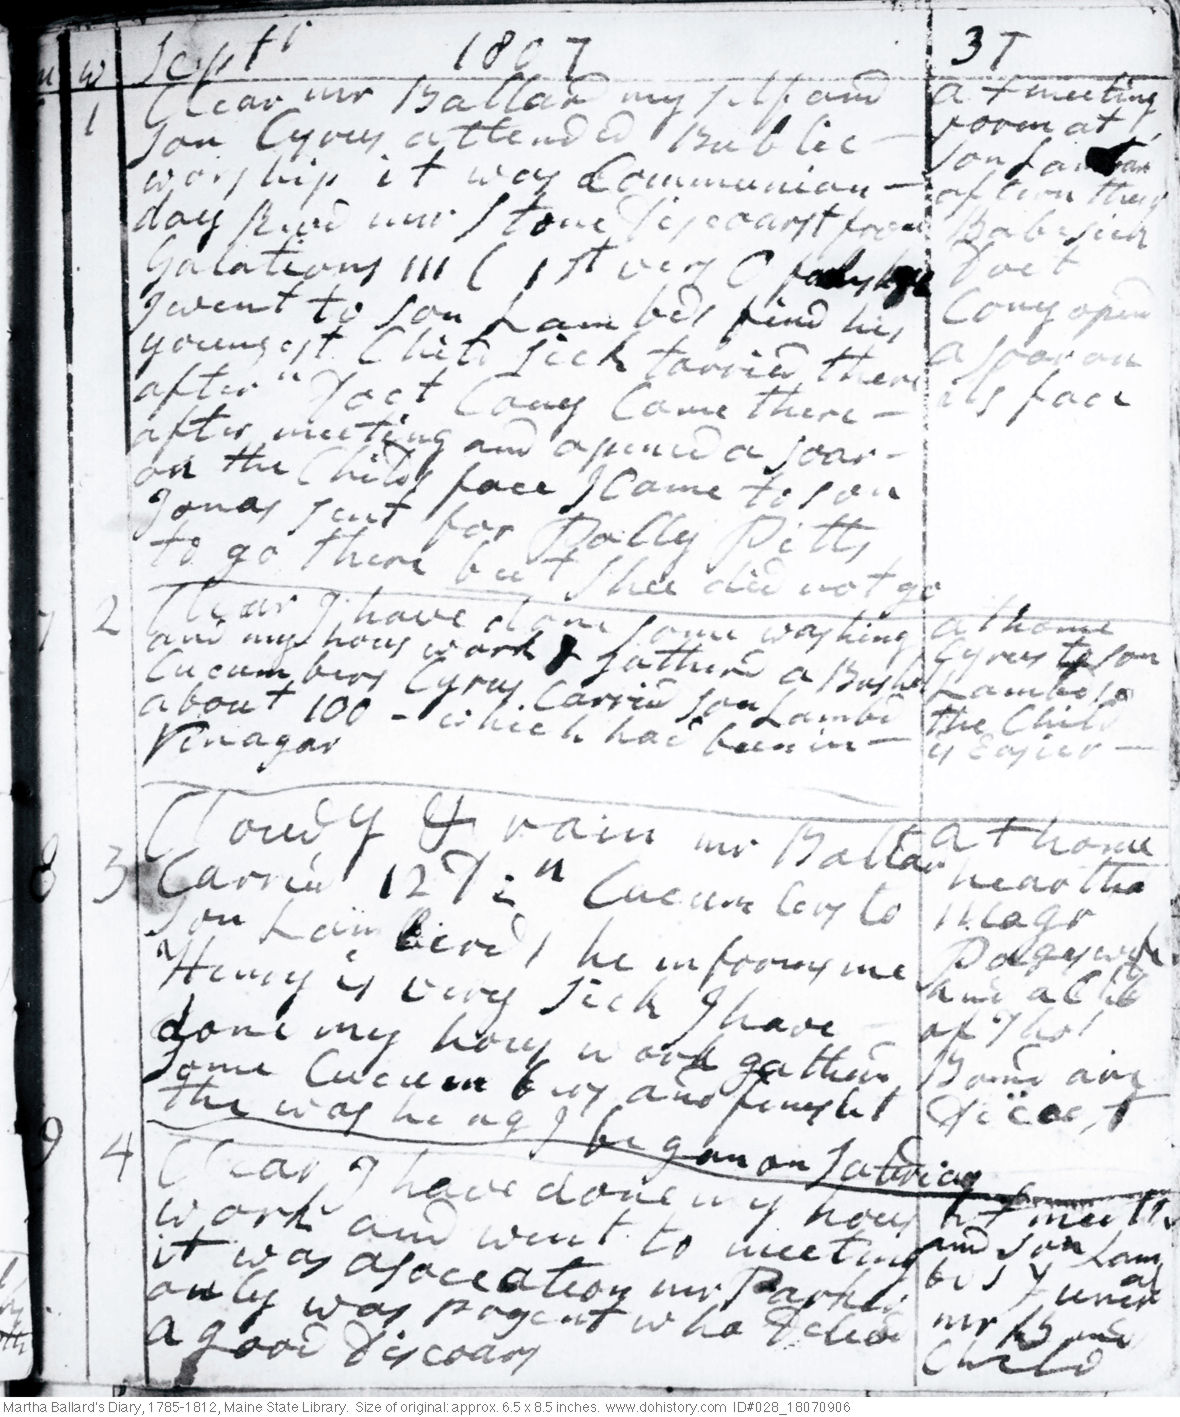 m w Septr 1807 37
6 1 Clear mr Ballard my self and
son Cyrus attended Public
worship it was Communion
day Revd mr Stone discoarst from
Galations III C 1st vers
I went to son Lambds find his
youngest Child sick tarried there
after n Doct Cony Came there
after meeting and opened a soar
on the Childs face I Came to son
Jonas sent for Dolly Pitts
to go there but Shee did not go
at meeting
forn at
son Lambds
aftern they
Babe sick
Doct
Cony opend
a soar on
its face
7 2 Clear I have done some washing
and my hous work & gatherd a Bushl
Cucumbers Cyrus Carried son Lambd
about 100 - which had been in
Vinagar
at home
Cyrus to son
Lambds
the Child
is Easier
8 3 Cloudy & rain mr Ballard
Carried 127 Cucumbers to
son Lamberds he informs me
Henry is very sick I have
done my hous work gatherd
some Cucumbers and finisht
the washeng I began on Saterday
at home
hear that
mr
Pages wife
and a Chld
of Thos
Bond are
Diceast
9 4 Clear I have done my hous
work and went to meeting
it was asociation mr Parker
only was present who delivd
a good Discoars
At meettn
and son Lam
bds Funeral
mr Bond
Child
Martha Ballard's Diary, 1785-1812, Maine State Library. Size of original: approx. 6.5 x 8.5 inches. www.dohistory.com ID#028_18070906